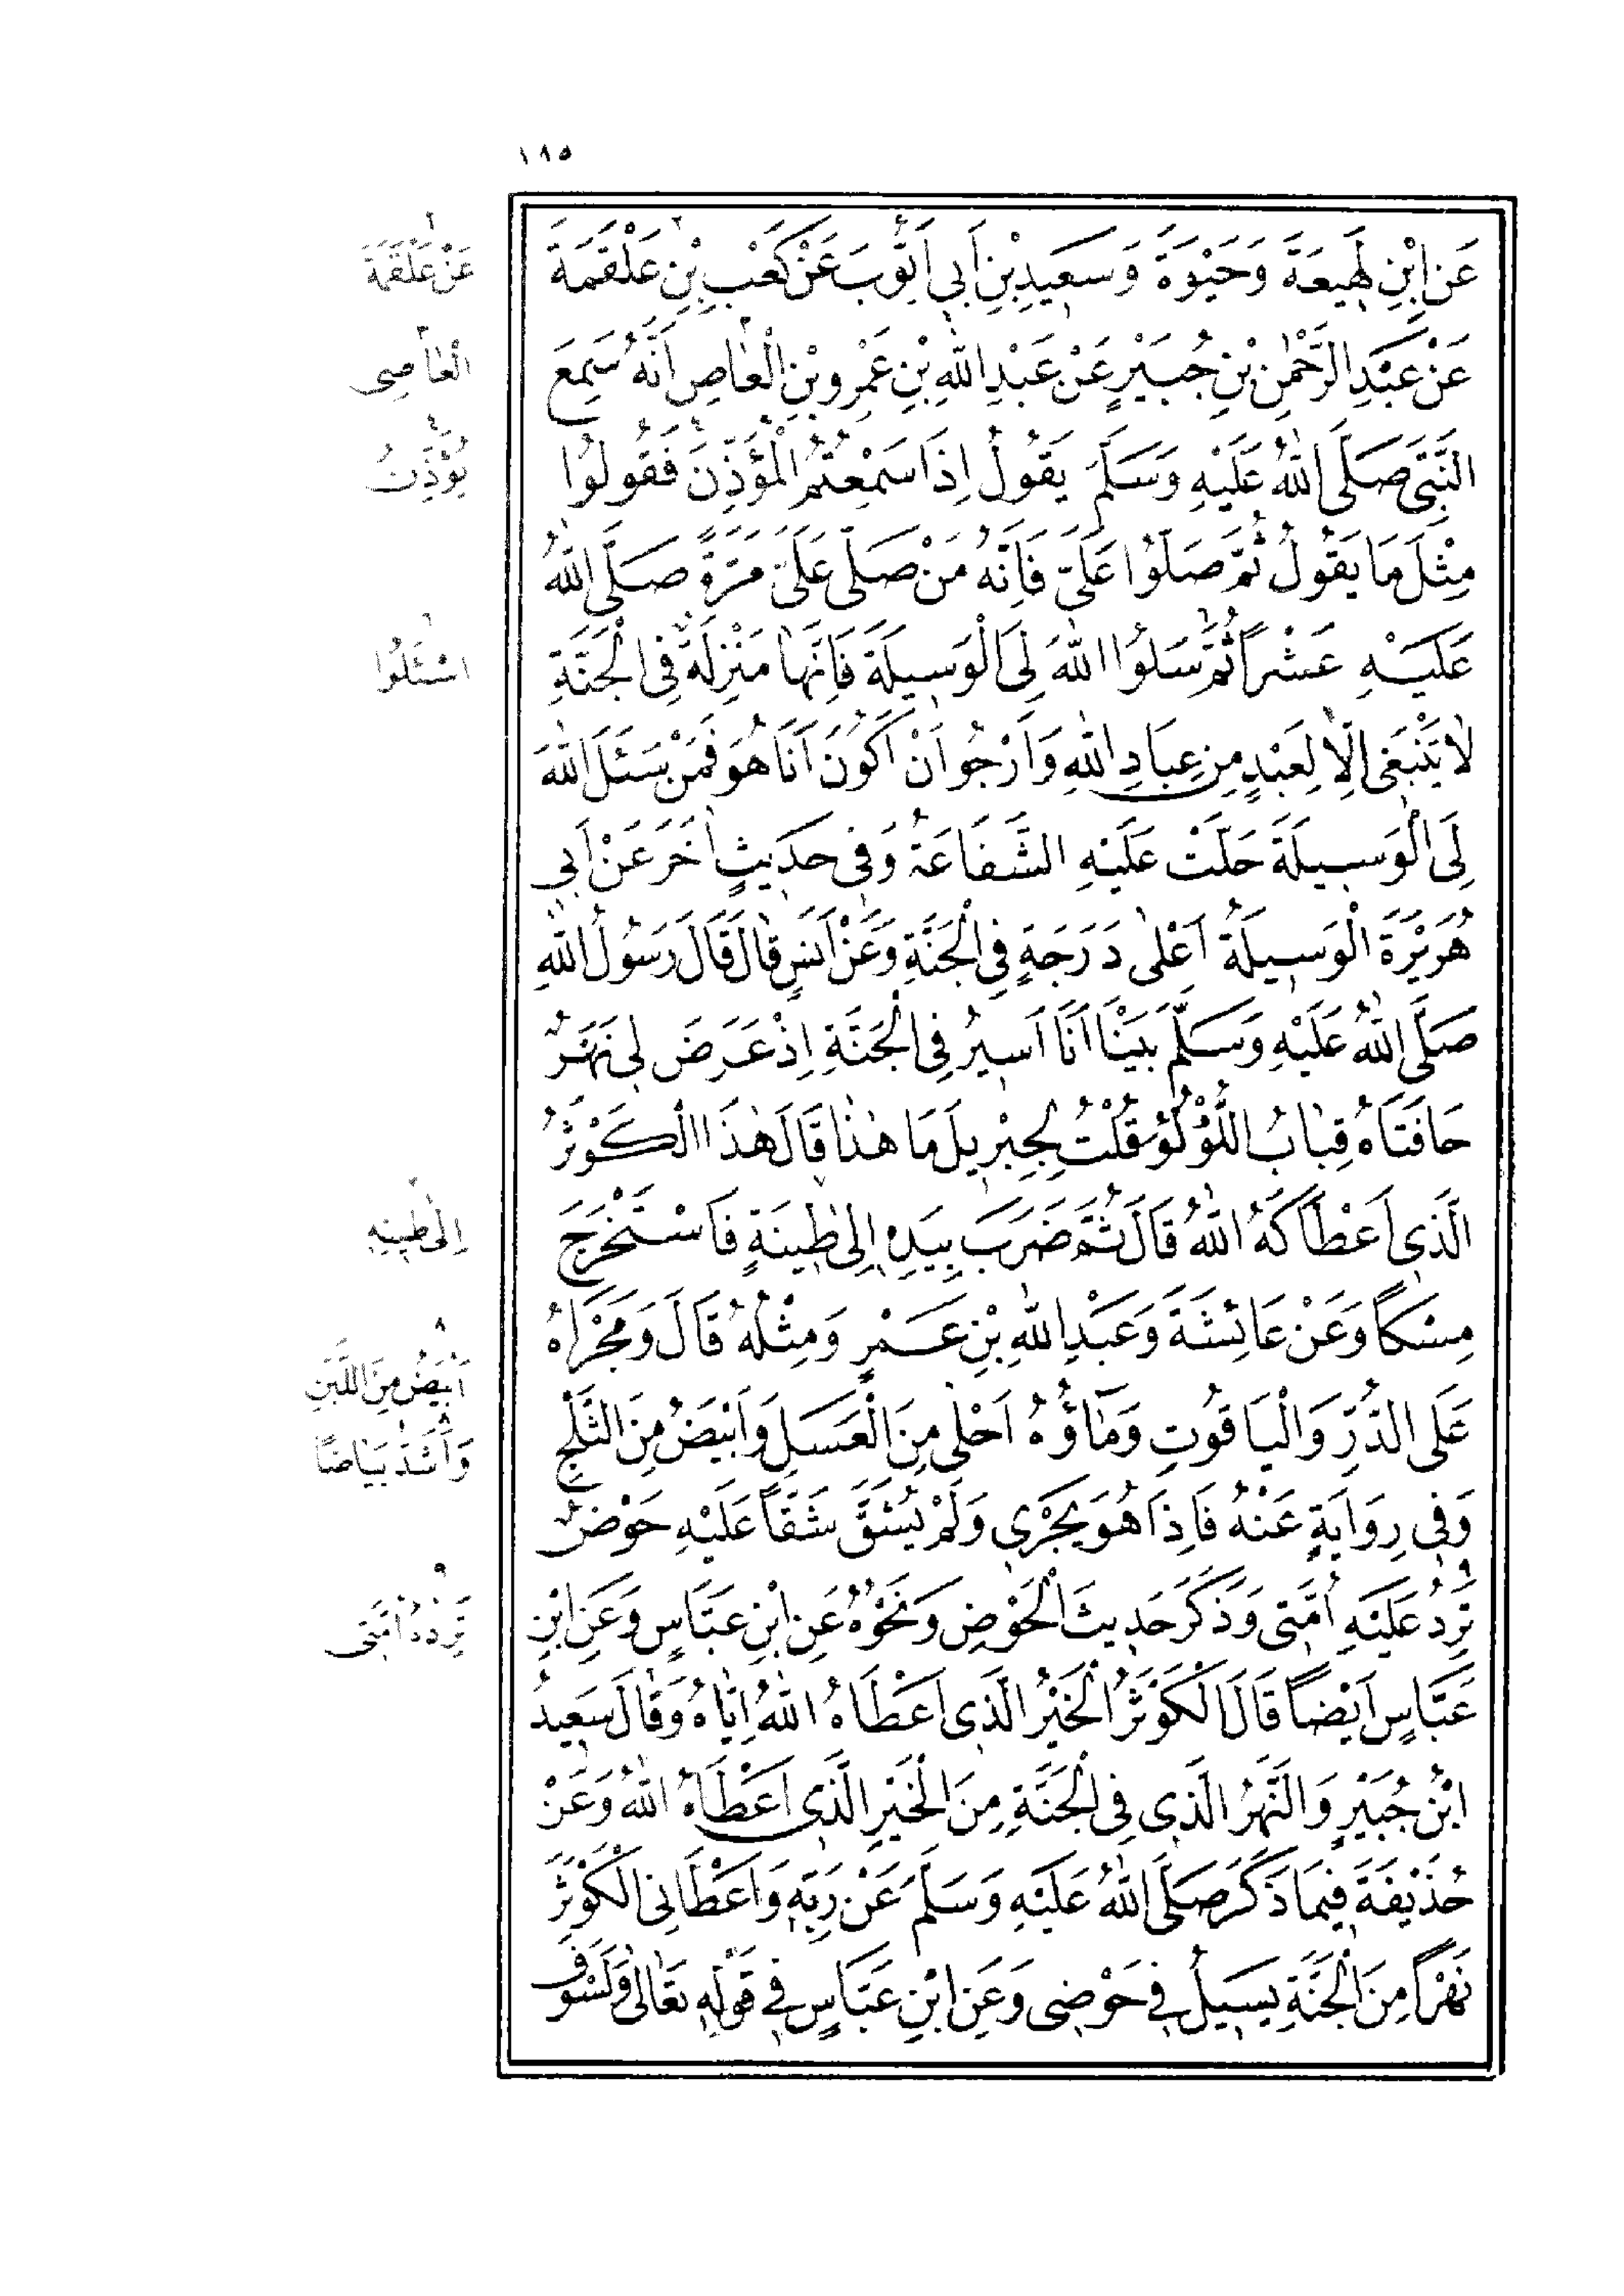 ١٨٥
عَنِ ابْنِ لَهِيعَةَ وَحَيْوَةَ وَسَعِيدِ بْنِ أَبِي أَيُّوبَ عَنْ كَعْبِ بْنِ عَلْقَمَةَ
عَنْ عَبْدِ الرَّحْمٰنِ بْنِ جُبَيْرٍ عَنْ عَبْدِ اللّٰهِ بْنِ عَمْرِو بْنِ الْعَاصِ اَنَّهُ سَمِعَ
النَّبِيَّ صَلَّى اللّٰهُ عَلَيْهِ وَسَلَّمَ يَقُولُ اِذَا سَمِعْتُمُ الْمُؤَذِّنَ فَقُولُوا
مِثْلَ مَا يَقُولُ ثُمَّ صَلُّوا عَلَيَّ فَاِنَّهُ مَنْ صَلَّى عَلَيَّ مَرَّةً صَلَّى اللّٰهُ
عَلَيْهِ عَشْرًا ثُمَّ سَلُوا اللّٰهَ لِىَ الْوَسِيلَةَ فَاِنَّهَا مَنْزِلَةٌ فِى الْجَنَّةِ
لَا يَنْبَغِى اِلَّا لِعَبْدٍ مِنْ عِبَادِ اللّٰهِ وَاَرْجُو اَنْ اَكُونَ اَنَا هُوَ فَمَنْ سَئَلَ اللّٰهَ
لِىَ الْوَسِيلَةَ حَلَّتْ عَلَيْهِ الشَّفَاعَةُ وَفِى حَدِيثٍ اٰخَرَ عَنْ اَبِى
هُرَيْرَةَ الْوَسِيلَةُ اَعْلٰى دَرَجَةٍ فِى الْجَنَّةِ وَعَنْ اَنَسٍ قَالَ قَالَ رَسُولُ اللّٰهِ
صَلَّى اللّٰهُ عَلَيْهِ وَسَلَّمَ بَيْنَا اَنَا اَسِيرُ فِى الْجَنَّةِ اِذْ عَرَضَ لِى نَهَرٌ
حَافَتَاهُ قِبَابُ اللُّؤْلُؤِ قُلْتُ لِجِبْرِيلَ مَا هٰذَا قَالَ هٰذَا الْكَوْثَرُ
الَّذِى اَعْطَاكَهُ اللّٰهُ قَالَ ثُمَّ ضَرَبَ بِيَدِهِ اِلٰى طِينَةٍ فَاسْتَخْرَجَ
مِسْكًا وَعَنْ عَائِشَةَ وَعَبْدِ اللّٰهِ بْنِ عَمْرٍ وَمِثْلُهُ قَالَ وَمَجْرَاهُ
عَلَى الدُّرِّ وَالْيَاقُوتِ وَمَاؤُهُ اَحْلٰى مِنَ الْعَسَلِ وَاَبْيَضُ مِنَ الثَّلْجِ
وَفِى رِوَايَةٍ عَنْهُ فَاِذَا هُوَ يَجْرِى وَلَمْ يُشَقَّ شَقًّا عَلَيْهِ حَوْضٌ
تَرِدُ عَلَيْهِ اُمَّتِى وَذَكَرَ حَدِيثَ الْحَوْضِ وَنَحْوُهُ عَنِ ابْنِ عَبَّاسٍ وَعَنِ ابْنِ
عَبَّاسٍ اَيْضًا قَالَ الْكَوْثَرُ الْخَيْرُ الَّذِى اَعْطَاهُ اللّٰهُ اِيَّاهُ وَقَالَ سَعِيدُ
ابْنُ جُبَيْرٍ وَالنَّهَرُ الَّذِى فِى الْجَنَّةِ مِنَ الْخَيْرِ الَّذِى اَعْطَاهُ اللّٰهُ وَعَنْ
حُذَيْفَةَ فِيمَا ذَكَرَ صَلَّى اللّٰهُ عَلَيْهِ وَسَلَّمَ عَنْ رَبِّهِ وَاَعْطَانِى الْكَوْثَرَ
نَهْرًا مِنَ الْجَنَّةِ يَسِيلُ فِى حَوْضِى وَعَنِ ابْنِ عَبَّاسٍ فِى قَوْلِهِ تَعَالٰى وَلَسَوْفَ
٢ عَنْ عَلْقَمَةَ
٣ الْعَاصِى
٤ يُؤَذِّنُ
٦ اسْئَلُوا
٧ اِلٰى طِينِهِ
٨ اَبْيَضُ مِنَ اللَّبَنِ
٨ وَاَشَدُّ بَيَاضًا
٩ تَرِدُهُ اُمَّتِى